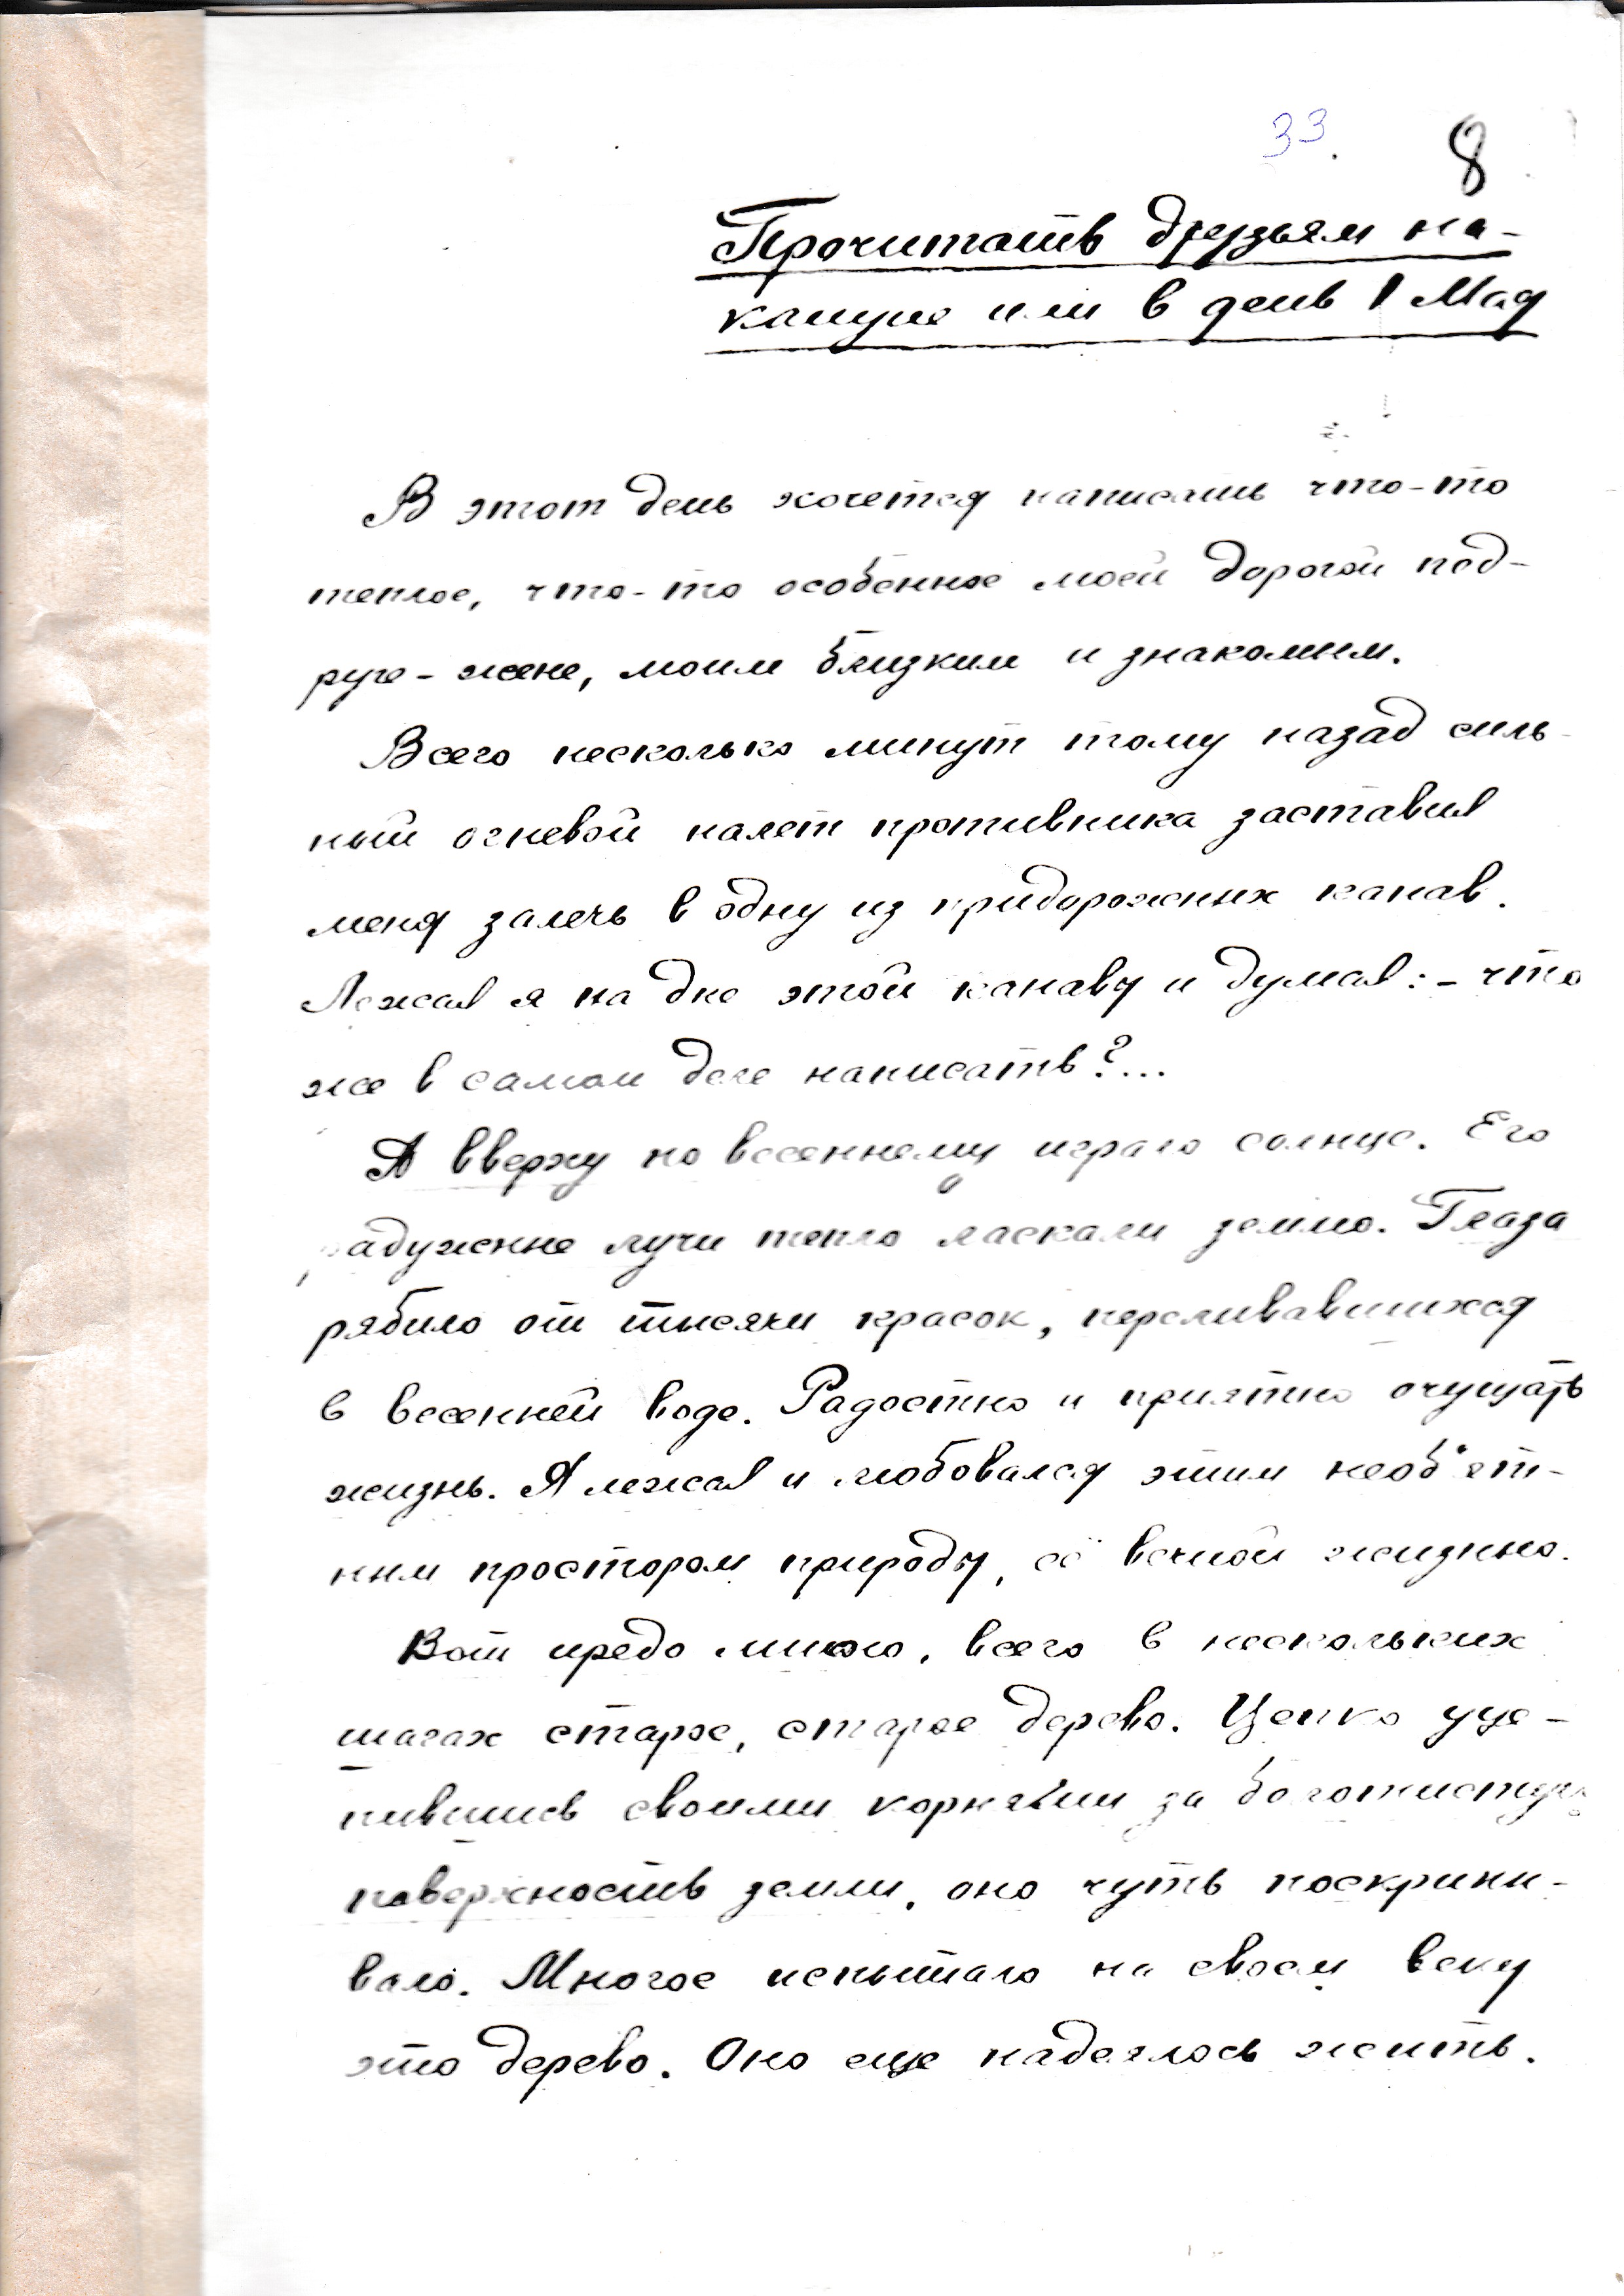 33. 8
Прочитать друзьям на-
кануне или в день 1 Мая
В этот день хочется написать что-то
теплое, что-то особенное моей дорогой под-
руге - жене, моим близким и знакомым.
Всего несколько минут тому назад силь-
ный огневой налет противника заставил
меня залечь в одну из придорожных канав.
Лежал я на дне этой канавы и думал: - что
же в самом деле написать?...
А вверху по весеннему играло солнце. Его
радужные лучи тепло ласкали землю. Глаза
рябило от тысячи красок, переливавшихся
в весенней воде. Радостно и приятно очущать
жизнь. Я лежал и любовался этим необ'ят-
ным простором природы, её вечной жизнью.
Вот предо мною, всего в нескольких
шагах старое, старое дерево. Цепко уце-
пившись своими корнями за болотистую
поверхность земли, оно чуть поскрипи-
вало. Многое испытало на своем веку
это дерево. Оно еще надеялось жить.